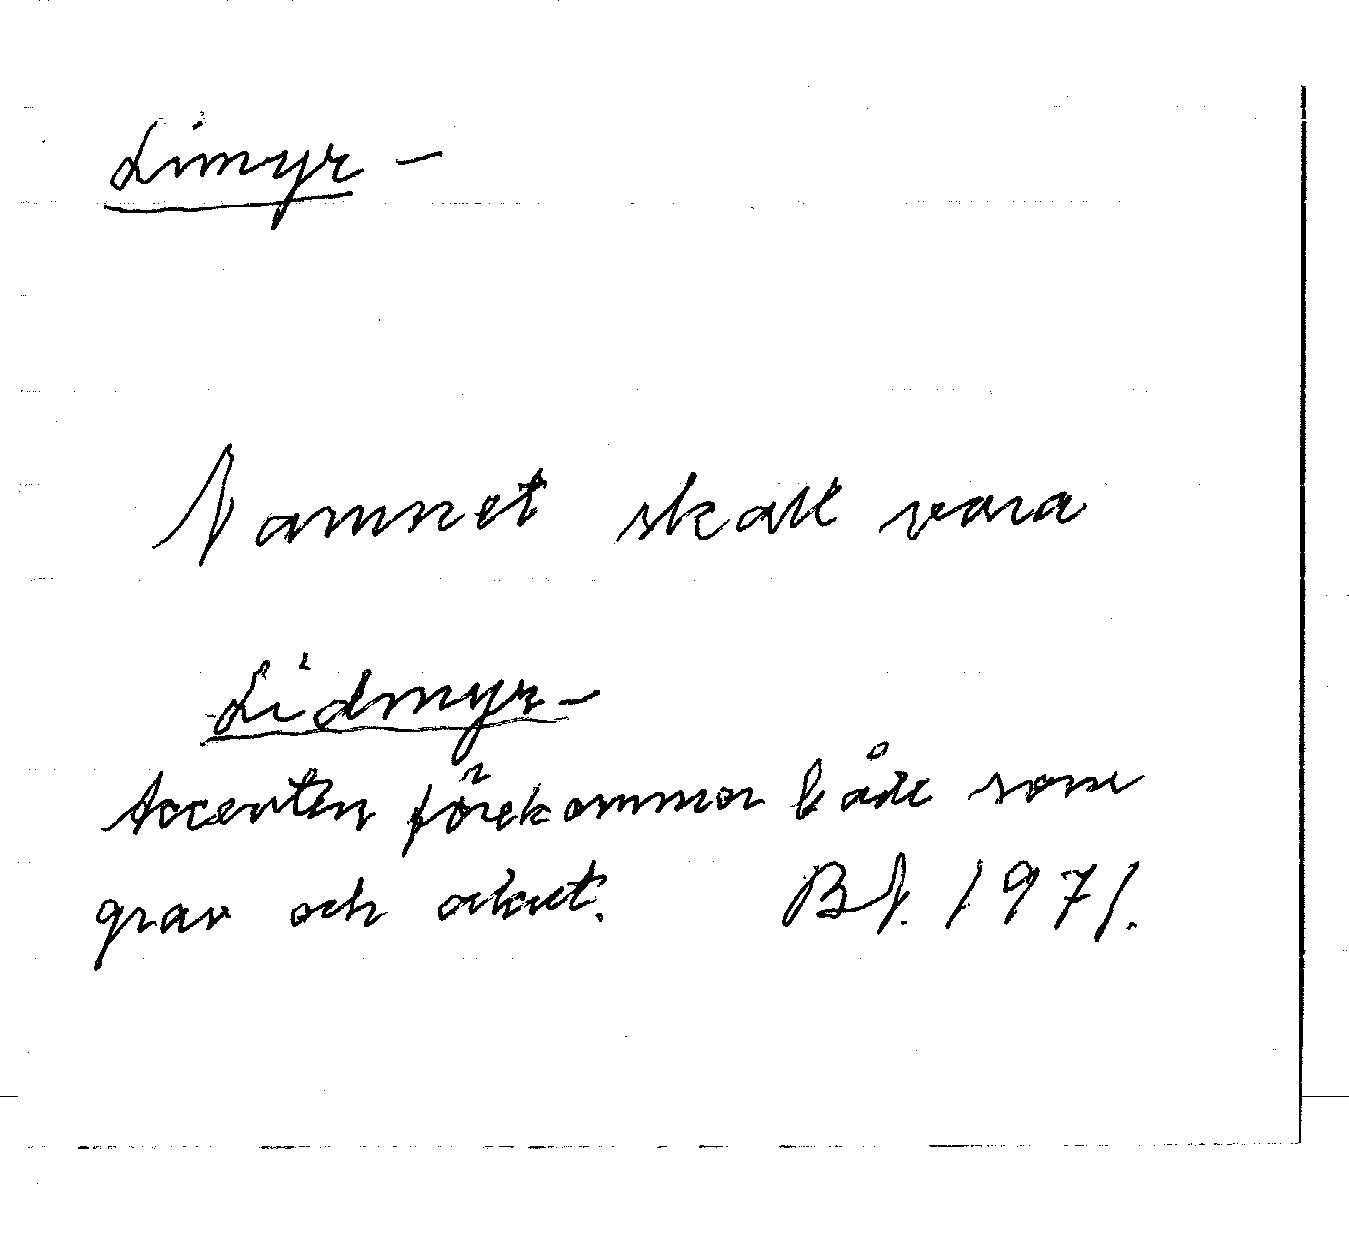 Limyr –
Namnet skall vara
Lidmyr –
Accenten förekommer både som
grav och akut. Bf. 1971.